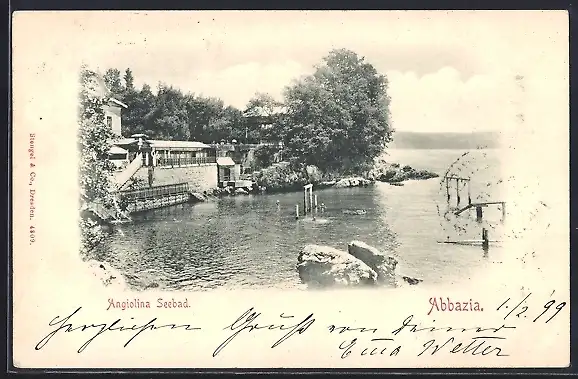 Stengel & Co., Dresden. 4809.
Angiolina Seebad.
Abbazia.
1/2. 99
Herzlichen Gruss von deiner
Ema Wetter